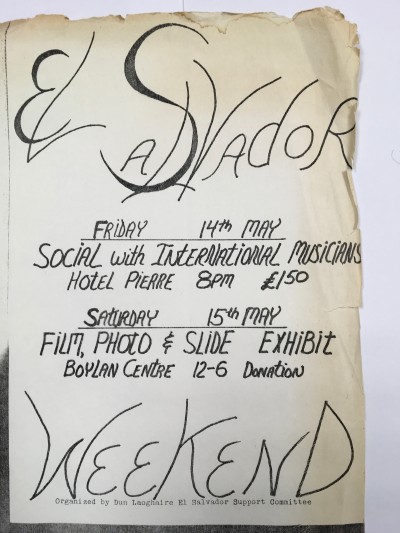 El Salvador
FRIDAY 14th MAY
SOCIAL with INTERNATIONAL MUSICIANS
HOTEL PIERRE 8pm £150
SATURDAY 15th MAY
FILM, PHOTO & SLIDE EXHIBIT
BOYLAN CENTRE 12-6 DONATION
WEEKEND
Organized by Dun Laoghaire El Salvador Support Committee